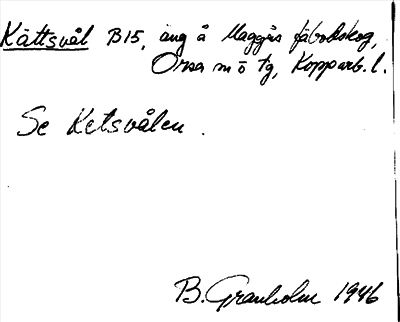 Kättsvål B15, äng å Maggås fäbodskog,
Orsa m ö tg, Kopparb. l.
Se Ketsvålen.
B. Granholm 1946